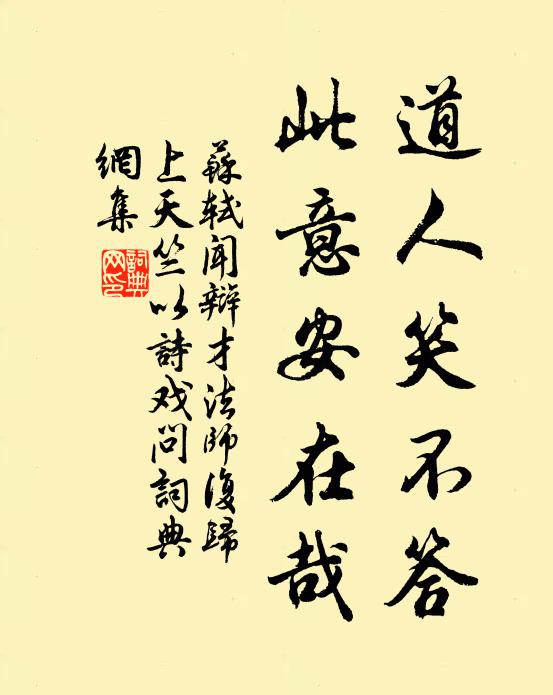 道人笑不答
此意安在哉
蘇軾聞辯才法師復歸
上天竺以詩戏問詞典
網集
詞典
网印